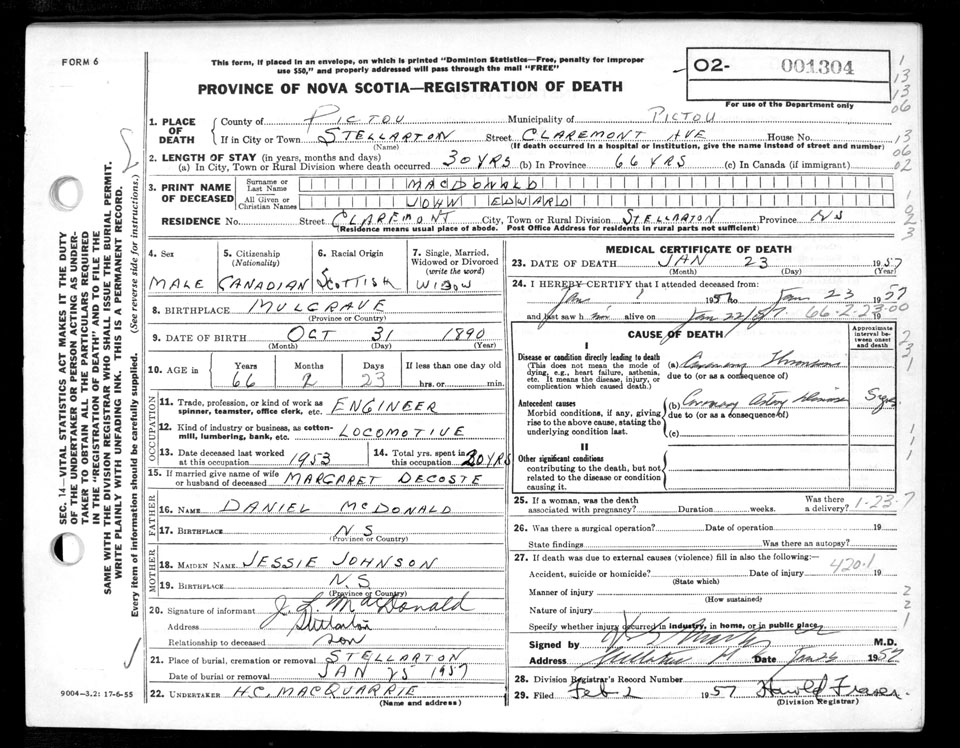 FORM 6
This form, if placed in an envelope, on which is printed "Dominion Statistics—Free, penalty for improper
use $50," and properly addressed will pass through the mail "FREE"
PROVINCE OF NOVA SCOTIA—REGISTRATION OF DEATH
O2- 001304
For use of the Department only
1
13
13
06
13
06
02
1
9
2
3
SEC. 14—VITAL STATISTICS ACT MAKES IT THE DUTY
OF THE UNDERTAKER OR PERSON ACTING AS UNDER-
TAKER TO OBTAIN ALL THE PARTICULARS REQUIRED
IN THE "REGISTRATION OF DEATH" AND TO FILE THE
SAME WITH THE DIVISION REGISTRAR WHO SHALL ISSUE THE BURIAL PERMIT.
WRITE PLAINLY WITH UNFADING INK. THIS IS A PERMANENT RECORD.
Every item of information should be carefully supplied. (See reverse side for instructions.)
1. PLACE OF DEATH
County of PICTOU Municipality of PICTOU
If in City or Town STELLARTON Street CLAREMONT AVE House No.
(Name) (If death occurred in a hospital or institution, give name instead of street and number)
2. LENGTH OF STAY (in years, months and days)
(a) In City, Town or Rural Division where death occurred 30 YRS (b) In Province 66 YRS (c) In Canada (if immigrant)
3. PRINT NAME OF DECEASED
Surname or Last Name MACDONALD
All Given or Christian Names JOHN EDWARD
RESIDENCE No. Street CLAREMONT City, Town or Rural Division STELLARTON Province NS
(Residence means usual place of abode. Post Office Address for residents in rural parts not sufficient)
4. Sex MALE
5. Citizenship (Nationality) CANADIAN
6. Racial Origin SCOTTISH
7. Single, Married, Widowed or Divorced (write the word) WIDOW
8. BIRTHPLACE MULGRAVE
(Province or Country)
9. DATE OF BIRTH OCT 31 1890
(Month) (Day) (Year)
10. AGE in Years Months Days If less than one day old
66 2 23 hrs. or min.
OCCUPATION
11. Trade, profession, or kind of work as
spinner, teamster, office clerk, etc. ENGINEER
12. Kind of industry or business, as cotton-
mill, lumbering, bank, etc. LOCOMOTIVE
13. Date deceased last worked at this occupation 1953
14. Total yrs. spent in this occupation 20 YRS
15. If married give name of wife
or husband of deceased MARGARET DECOSTE
FATHER
16. NAME DANIEL MCDONALD
17. BIRTHPLACE N S
(Province or Country)
MOTHER
18. MAIDEN NAME JESSIE JOHNSON
19. BIRTHPLACE N.S
(Province or Country)
20. Signature of informant J. L. MacDonald
Address Stellarton
Relationship to deceased son
21. Place of burial, cremation or removal STELLARTON
Date of burial or removal JAN 25 1957
22. UNDERTAKER H.C. MACQUARRIE
(Name and address)
9004—3.2: 17-6-55
MEDICAL CERTIFICATE OF DEATH
23. DATE OF DEATH JAN 23 1957
(Month) (Day) (Year)
24. I HEREBY CERTIFY that I attended deceased from:
Jan 1 195 to Jan 23 1957
and last saw him alive on Jan 22/57 19
66-2-23-00
CAUSE OF DEATH
Approximate interval between onset and death
I
Disease or condition directly leading to death
(This does not mean the mode of dying, e.g., heart failure, asthenia, etc. It means the disease, injury, or complication which caused death.)
(a) Coronary Thrombosis
due to (or as a consequence of)
Antecedent causes
Morbid conditions, if any, giving rise to the above cause, stating the underlying condition last.
(b) Coronary Artery
due to (or as a consequence of)
(c)
II
Other significant conditions
contributing to the death, but not related to the disease or condition causing it.
2
3
1
1
1
1
25. If a woman, was the death associated with pregnancy? Duration weeks. Was there a delivery?
1-23-7
26. Was there a surgical operation? Date of operation 19
State findings Was there an autopsy?
27. If death was due to external causes (violence) fill in also the following:—
420.1
Accident, suicide or homicide? Date of injury 19
(State which)
Manner of injury
(How sustained)
Nature of injury
Specify whether injury occurred in industry, in home, or in public place
2
2
1
Signed by M.D.
Address Date Jan 26 1957
28. Division Registrar's Record Number
29. Filed Feb 2 1957 Harold Fraser
(Division Registrar)